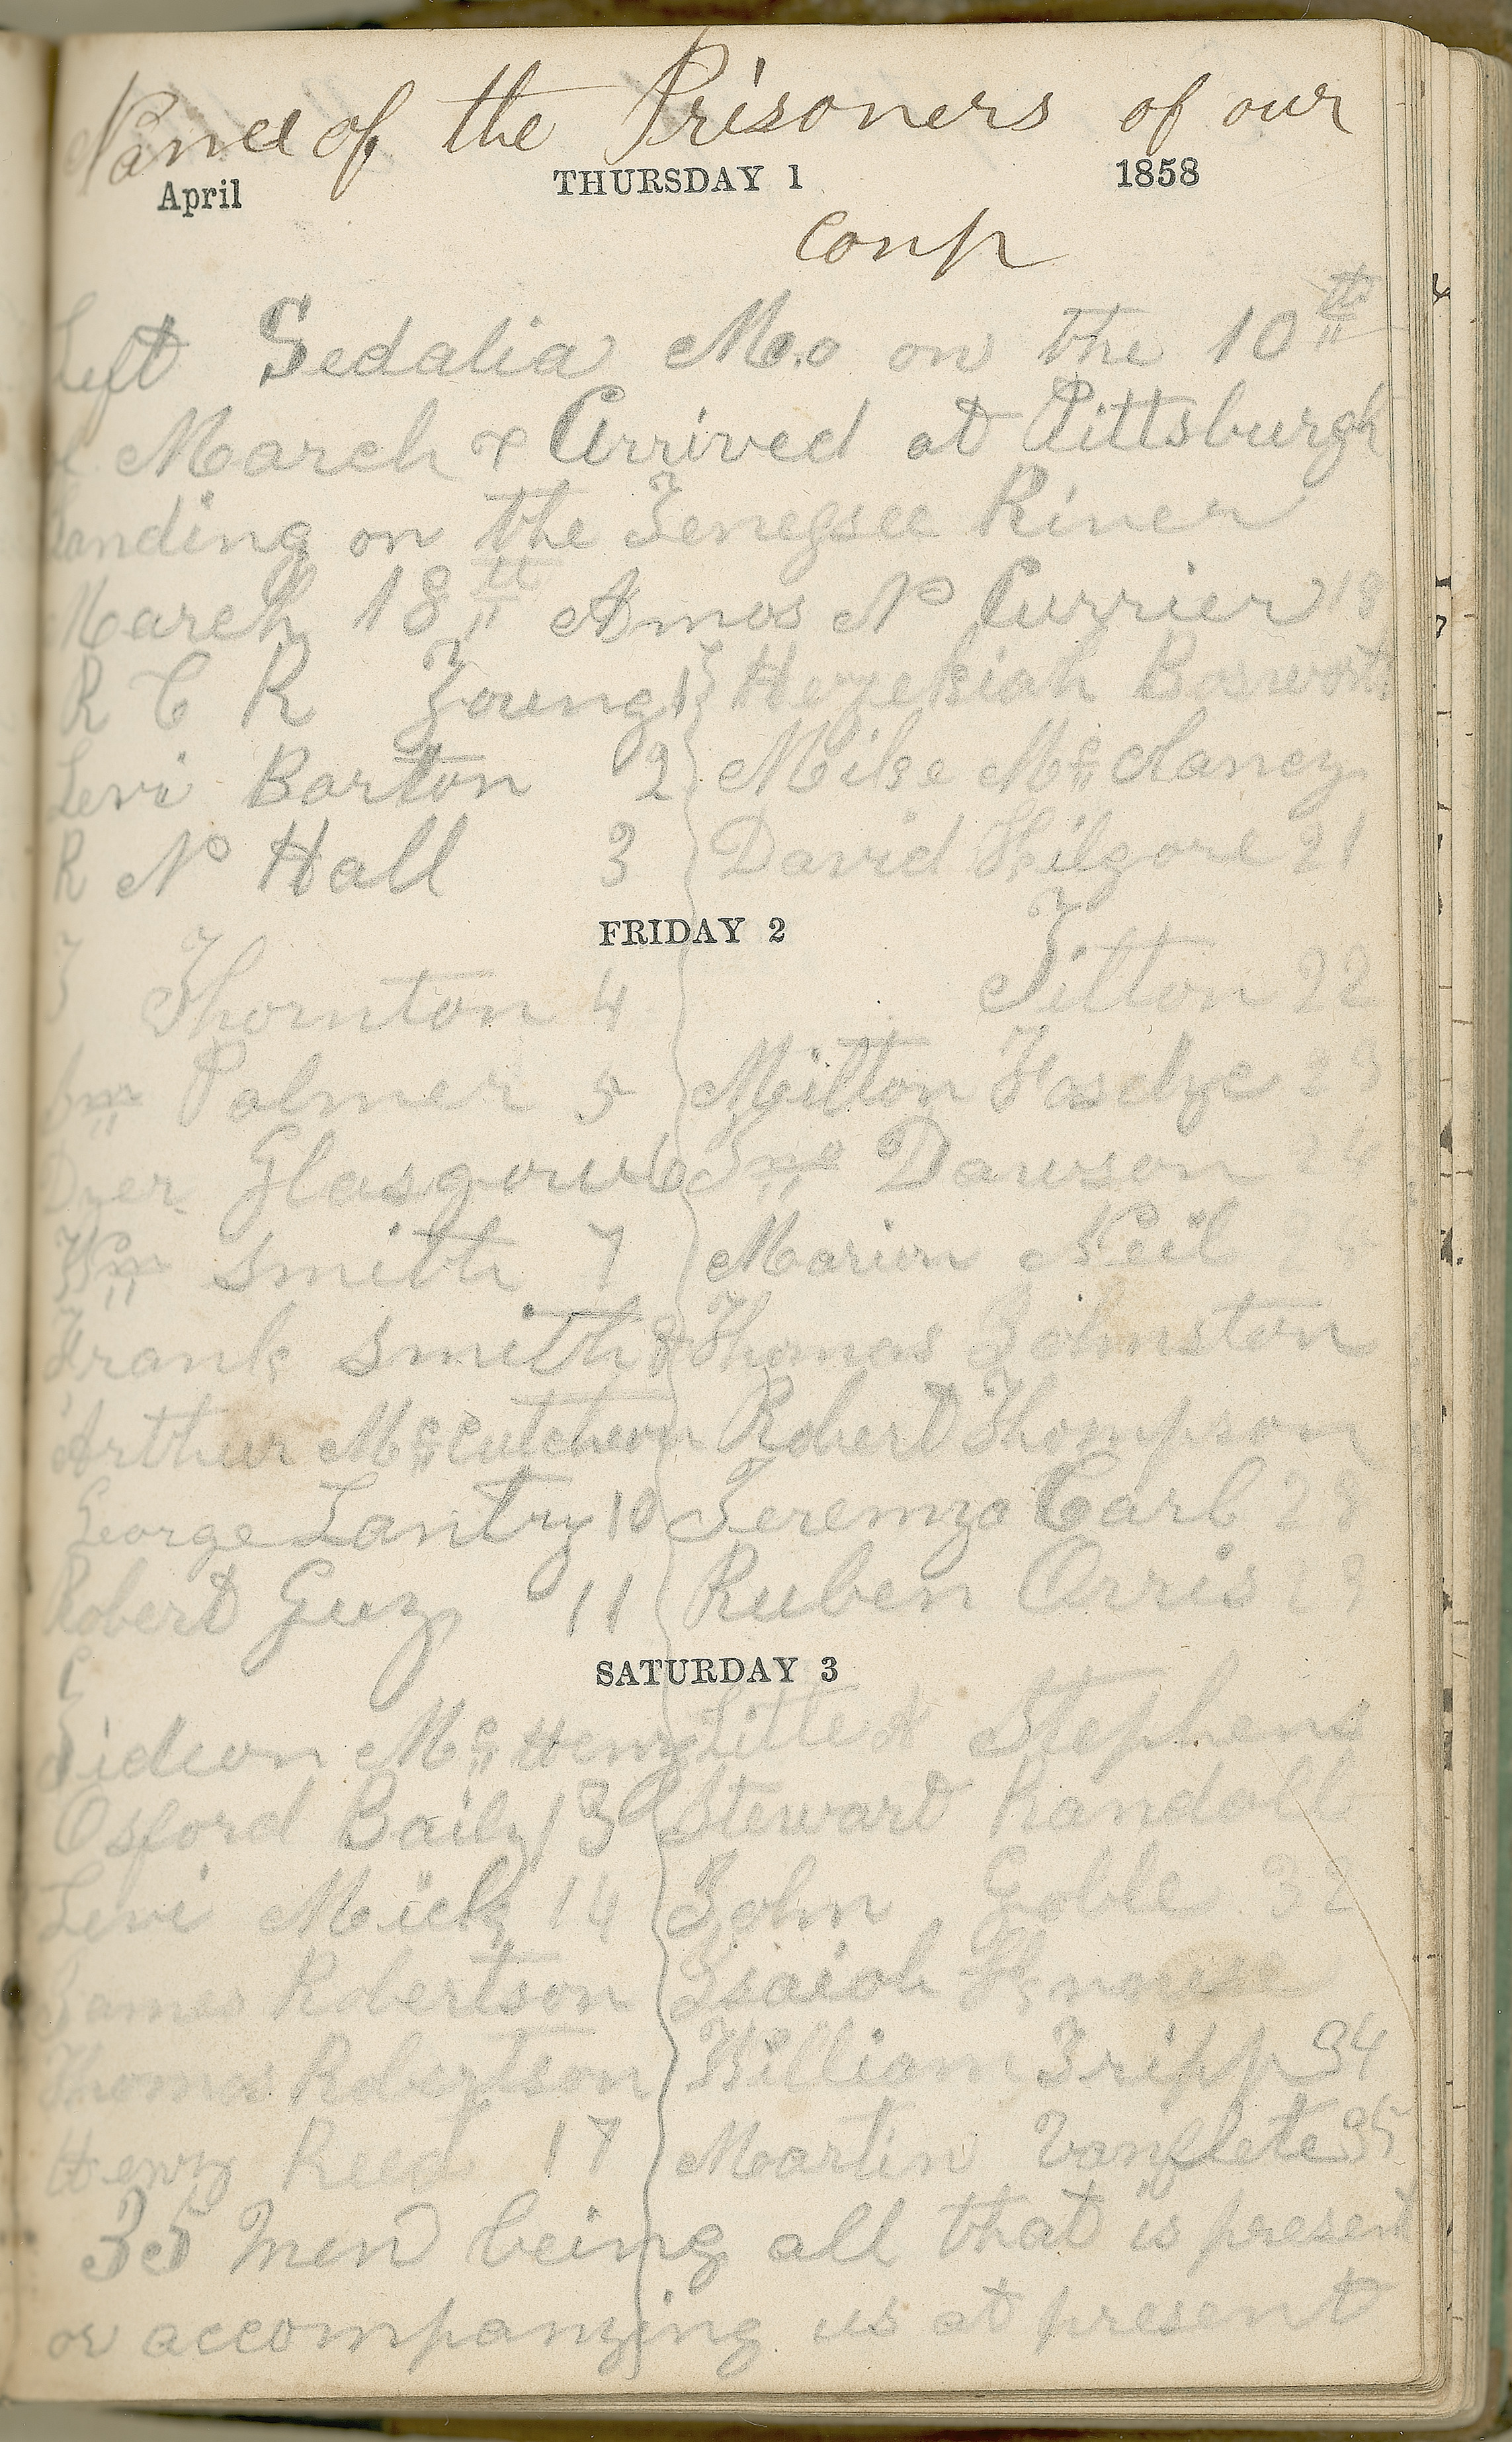 Names of the Prisoners of our
April THURSDAY 1 1858
Comp
Left Sedalia Mo on the 10th
of March & Arrived at Pittsburgh
Landing on the Tenessee River
March 18th Amos N Currier 18
R C R Young 1 Hezekiah Boswort
Levi Barton 2 Mike Mc Claney
R N Hall 3 David Kilgore 21
FRIDAY 2
J Thornton 4 Tilton 22
Palmer 5 Milton 23
Dyer Glasgow 6 Jno Dawson 24
Wm Smith 7 Marion Neil
Frank Smith 8 Thomas Johnston
Arthur Mc Cutcheon Robert Thompson
George Lantry 10 Jeremya Carl 28
Robert Guy 11 Ruben Orris 29
SATURDAY 3
Gideon Mc Henry Stephens
Osford Baily 13 Steward Randall
Levi Mick 14 John Goble 32
James Robertson Isaiah Knouse
Thomas Robertson William Tripp 34
Henry Reed 17 Martin Vanflete 35
35 Men being all that is present
or accompanying us at present